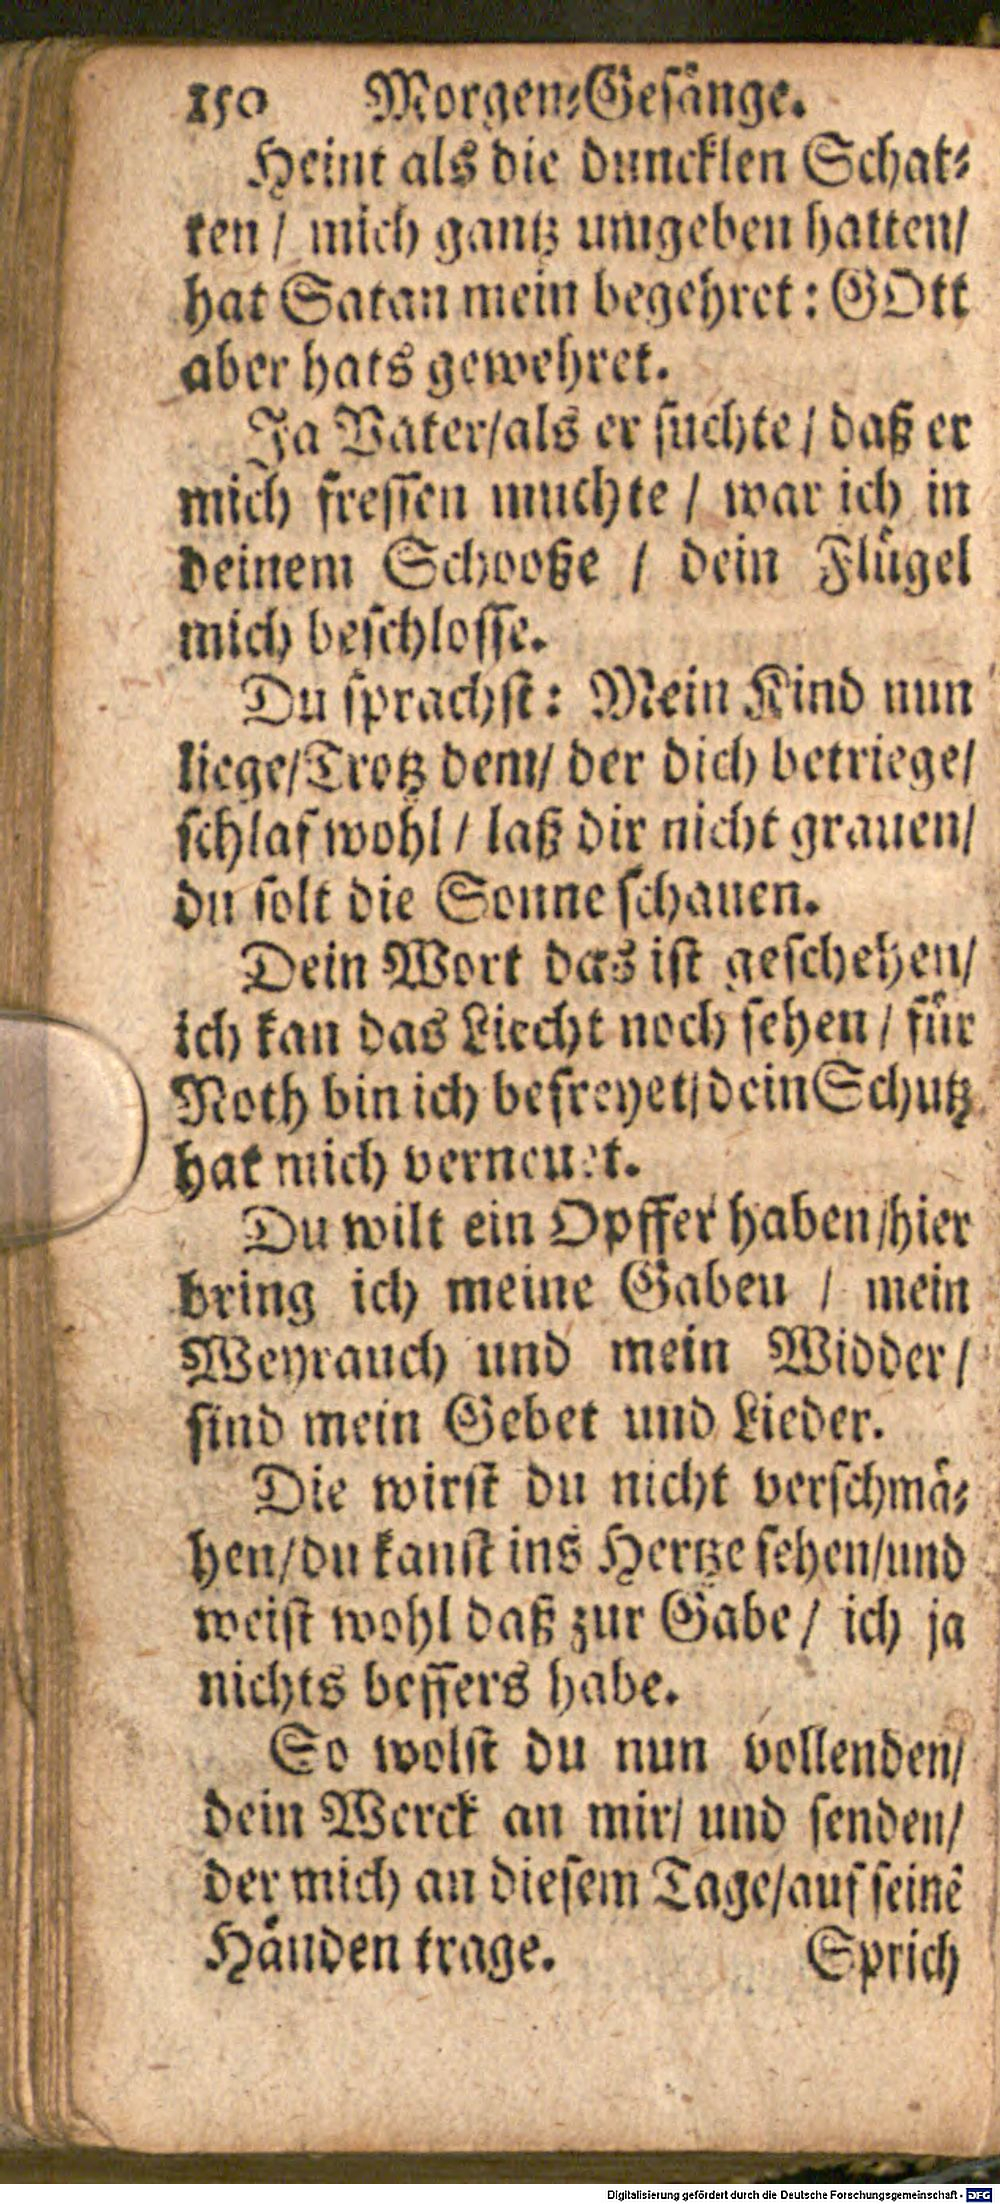 150 Morgen-Gesänge.
Heint als die duncklen Schat-
ten / mich gantz umgeben hatten/
hat Satan mein begehret: GOtt
aber hats gewehret.
Ja Vater/als er suchte / daß er
mich fressen muchte / war ich in
deinem Schooße / dein Flügel
mich beschlosse.
Du sprachst: Mein Kind nun
liege/Trotz dem/ der dich betriege/
schlaf wohl / laß dir nicht grauen/
du solt die Sonne schauen.
Dein Wort das ist geschehen/
ich kan das Liecht noch sehen / für
Noth bin ich befreyet/dein Schutz
hat mich verneuet.
Du wilt ein Opffer haben/hier
bring ich meine Gaben / mein
Weyrauch und mein Widder/
sind mein Gebet und Lieder.
Die wirst du nicht verschmä-
hen/du kanst ins Hertze sehen/und
weist wohl daß zur Gabe / ich ja
nichts bessers habe.
So wolst du nun vollenden/
dein Werck an mir/ und senden/
der mich an diesem Tage/auf seinē
Händen trage. Sprich
Digitalisierung gefördert durch die Deutsche Forschungsgemeinschaft - DFG